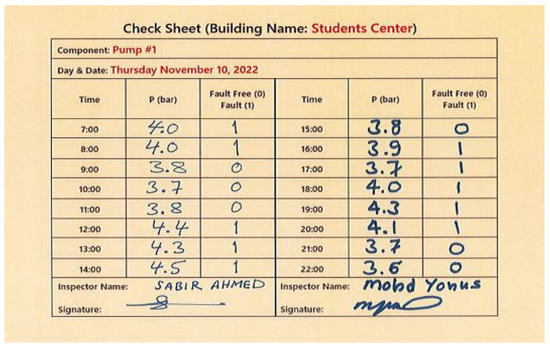 Check Sheet (Building Name: Students Center)
Component: Pump #1
Day & Date: Thursday November 10, 2022
Time P (bar) Fault Free (0) Fault (1) Time P (bar) Fault Free (0) Fault (1)
7:00 4.0 1 15:00 3.8 0
8:00 4.0 1 16:00 3.9 1
9:00 3.8 0 17:00 3.7 1
10:00 3.7 0 18:00 4.0 1
11:00 3.8 0 19:00 4.3 1
12:00 4.4 1 20:00 4.1 1
13:00 4.3 1 21:00 3.7 0
14:00 4.5 1 22:00 3.6 0
Inspector Name: SABIR AHMED Inspector Name: Mohd Yonus
Signature: Signature: